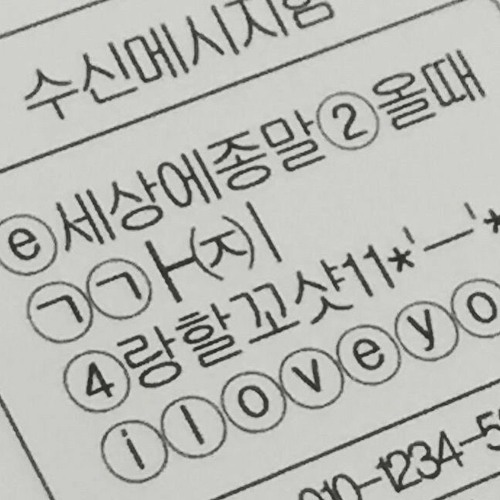 수신메시지함
ⓔ세상에종말②올때
㉠㉠ㅏ(ㅈ)ㅣ
④랑할꼬샷11*'ㅡ'*
ⓘⓛⓞⓥⓔⓨⓞ
010-1234-5